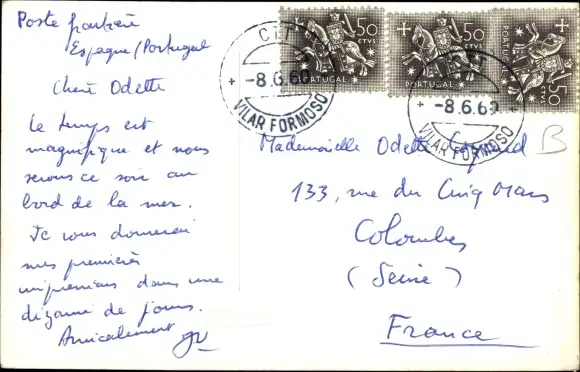 Poste frontière
Espagne/Portugal
Chère Odette
Le temps est
magnifique et nous
serons ce soir au
bord de la mer.
Je vous donnerai
mes premières
impressions dans une
dizaine de jours.
Amicalement
50
CTVS
PORTUGAL
50
CTVS
PORTUGAL
50
CTVS
PORTUGAL
CTT
-8.6.60
VILAR FORMOSO
-8.6.60
VILAR FORMOSO
Mademoiselle Odette
133, rue du Cinq Mars
Colombes
(Seine)
France
B